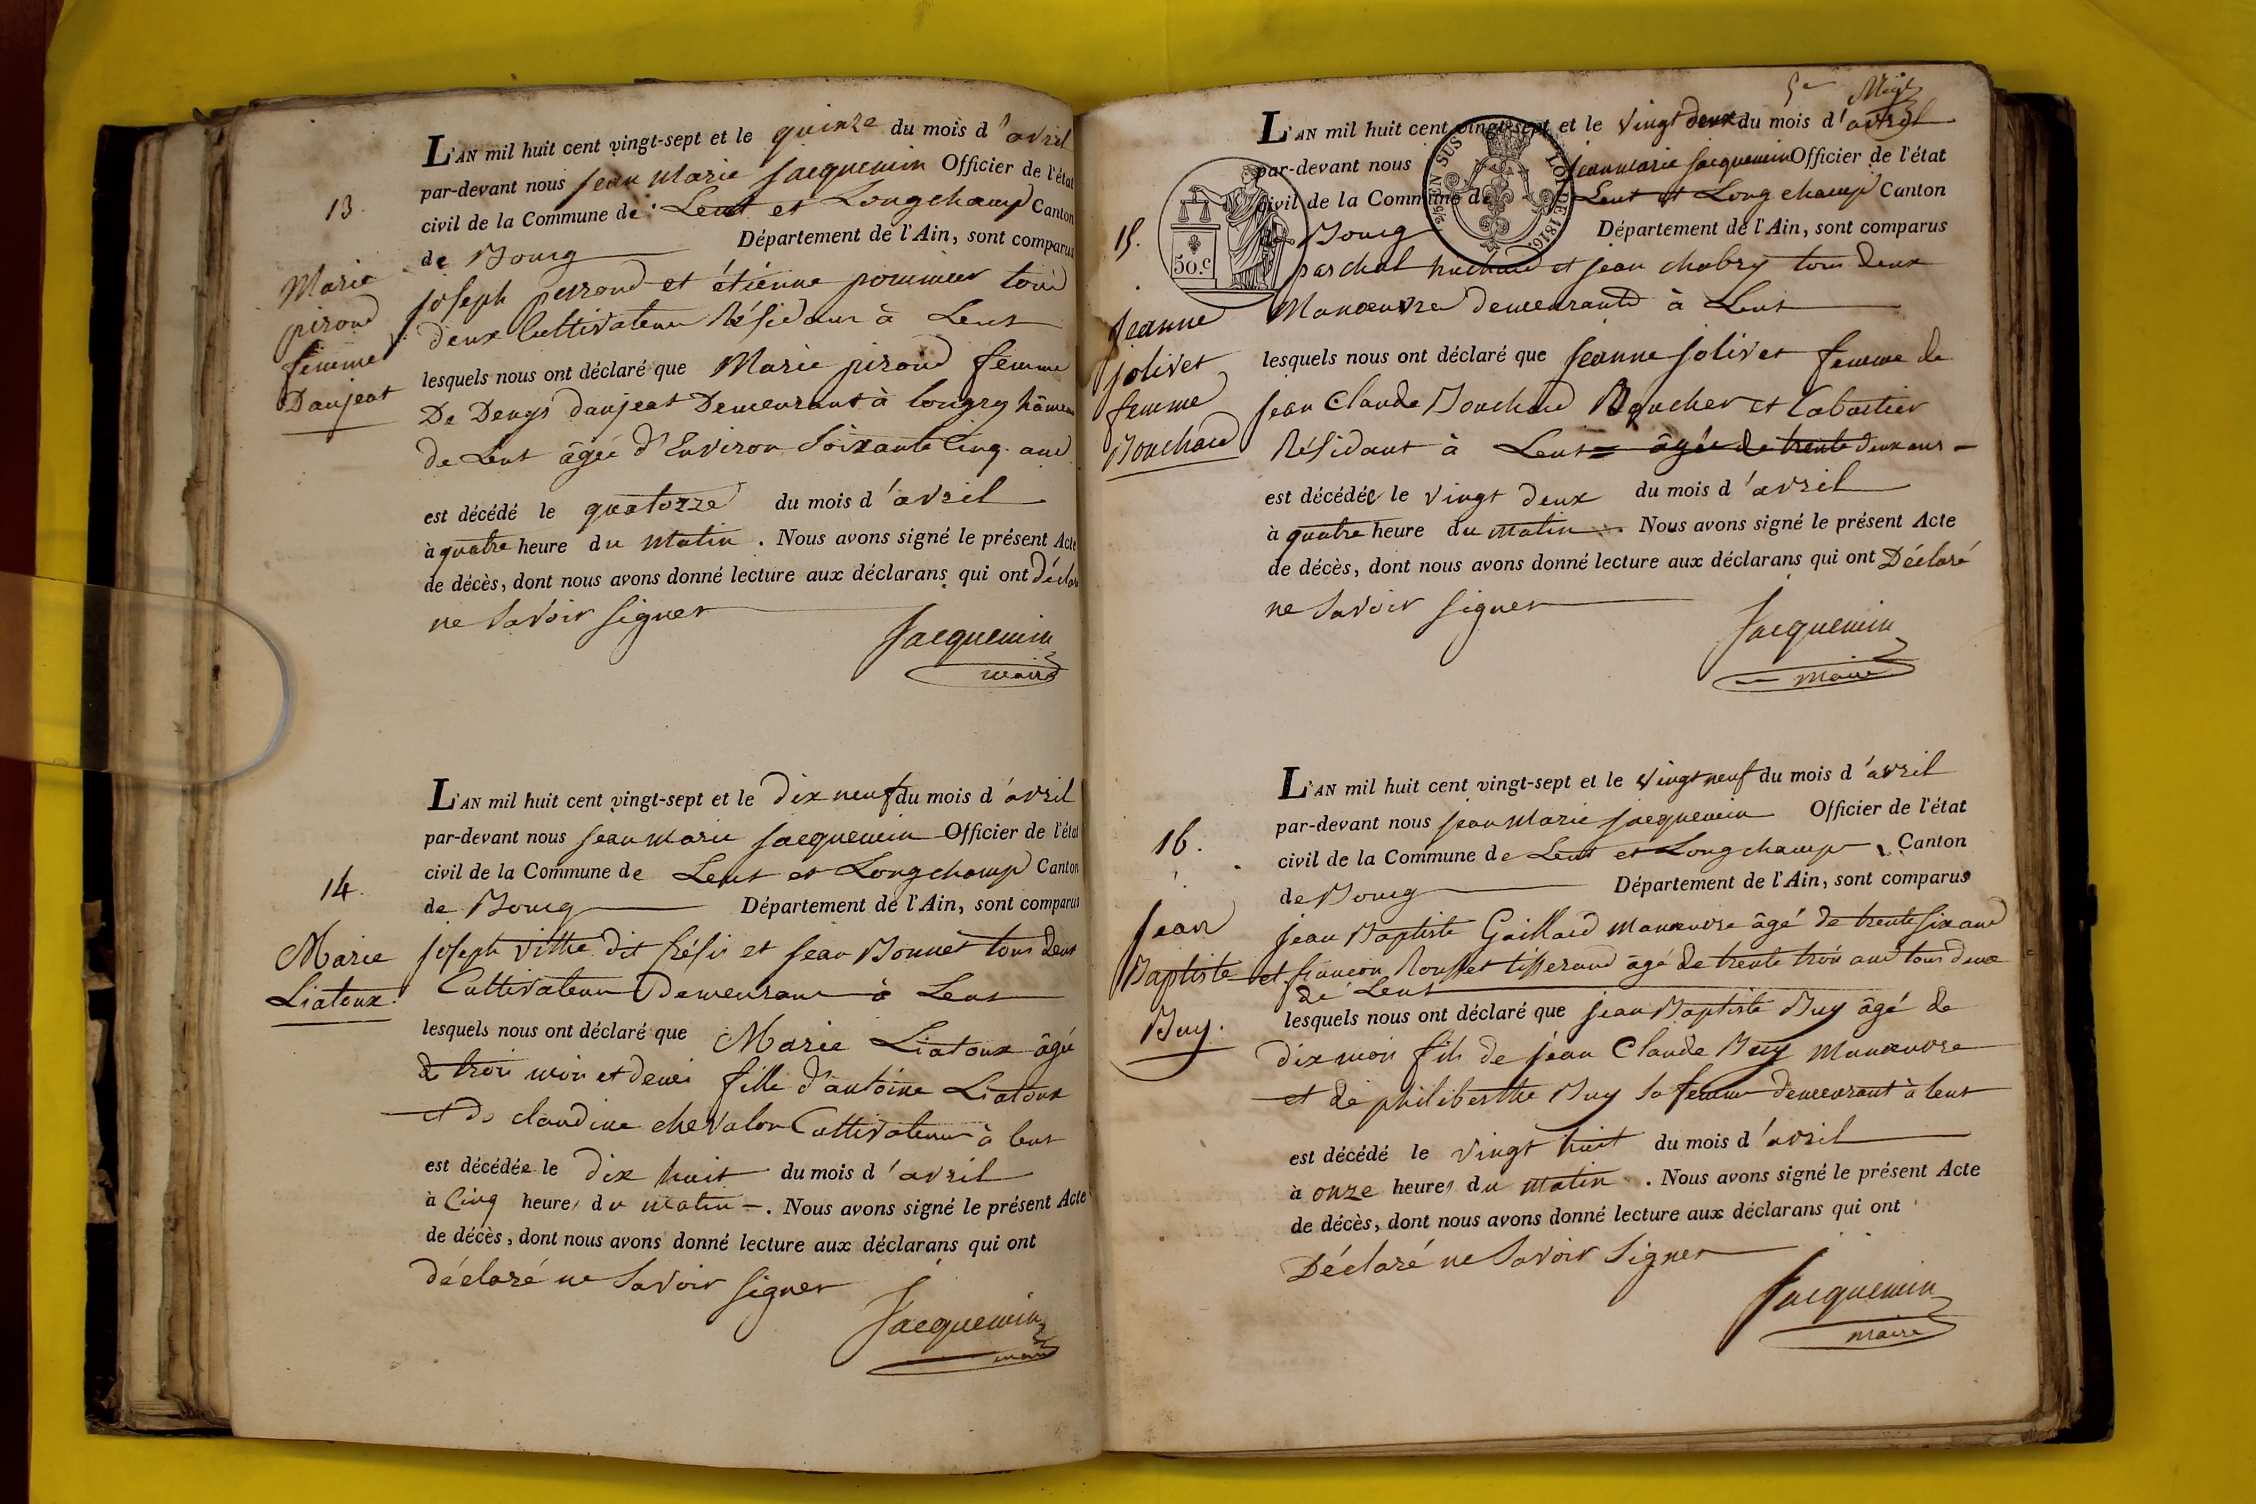 13.
Marie
pirond
femme
Danjeat
L'AN mil huit cent vingt-sept et le quinze du mois d'avril
par-devant nous jean Marie jacquemin Officier de l'état
civil de la Commune de Lent et Longchamp Canton
de Bourg Département de l'Ain, sont comparus
joseph perrond et étienne pommier tous
deux Cultivateur Résidant à Lent
lesquels nous ont déclaré que Marie pirond femme
De Denys danjeat Demeurant à longry hâmeau
de Lent âgée d'Environ Soixante Cinq ans
est décédé le quatorze du mois d'avril
à quatre heure du Matin. Nous avons signé le présent Acte
de décès, dont nous avons donné lecture aux déclarans qui ont déclaré
ne Savoir Signer
Jacquemin
maire
14.
Marie
Liatoux.
L'AN mil huit cent vingt-sept et le dix neuf du mois d'avril
par-devant nous jean Marie jacquemin Officier de l'état
civil de la Commune de Lent et Longchamp Canton
de Bourg Département de l'Ain, sont comparus
joseph vithe dit et jean Bonnet tous deux
Cultivateur Demeurant à Lent
lesquels nous ont déclaré que Marie Liatoux âgée
de trois mois et demi fille d'antoine Liatoux
et de claudine chevalon Cultivateur à lent
est décédée le dix huit du mois d'avril
à Cinq heures du Matin. Nous avons signé le présent Acte
de décès, dont nous avons donné lecture aux déclarans qui ont
déclaré ne Savoir Signer
Jacquemin
maire
15.
jeanne
jolivet
femme
Bouchard
50.c
25 EN SUS
LOI DE 1816
L'AN mil huit cent vingt-sept et le vingt deux du mois d'avril
par-devant nous jean marie jacquemin Officier de l'état
civil de la Commune de Lent et Longchamp Canton
de Bourg Département de l'Ain, sont comparus
paschal et jean chabry tous deux
Manoeuvre demeurants à Lent
lesquels nous ont déclaré que jeanne jolivet femme de
jean Claude Bouchard Boucher et Cabartier
Résidant à Lent âgée de trente deux ans
est décédée le vingt deux du mois d'avril
à quatre heure du matin. Nous avons signé le présent Acte
de décès, dont nous avons donné lecture aux déclarans qui ont Déclaré
ne Savoir Signer
Jacquemin
Maire
16.
jean
Baptiste
Buy.
L'AN mil huit cent vingt-sept et le vingt neuf du mois d'avril
par-devant nous jean Marie jacquemin Officier de l'état
civil de la Commune de Lent et Longchamp Canton
de Bourg Département de l'Ain, sont comparus
jean Baptiste Gaillard manoeuvre âgé de trente six ans
et françois Rousset tisserand âgé de trente trois ans tous deux
de Lent
lesquels nous ont déclaré que jean Baptiste Buy âgé de
dix mois fils de jean Claude Buy Manoeuvre
et de philiberthe Buy Sa femme demeurant à lent
est décédé le vingt huit du mois d'avril
à onze heures du Matin. Nous avons signé le présent Acte
de décès, dont nous avons donné lecture aux déclarans qui ont
Déclaré ne Savoir Signer
Jacquemin
Maire